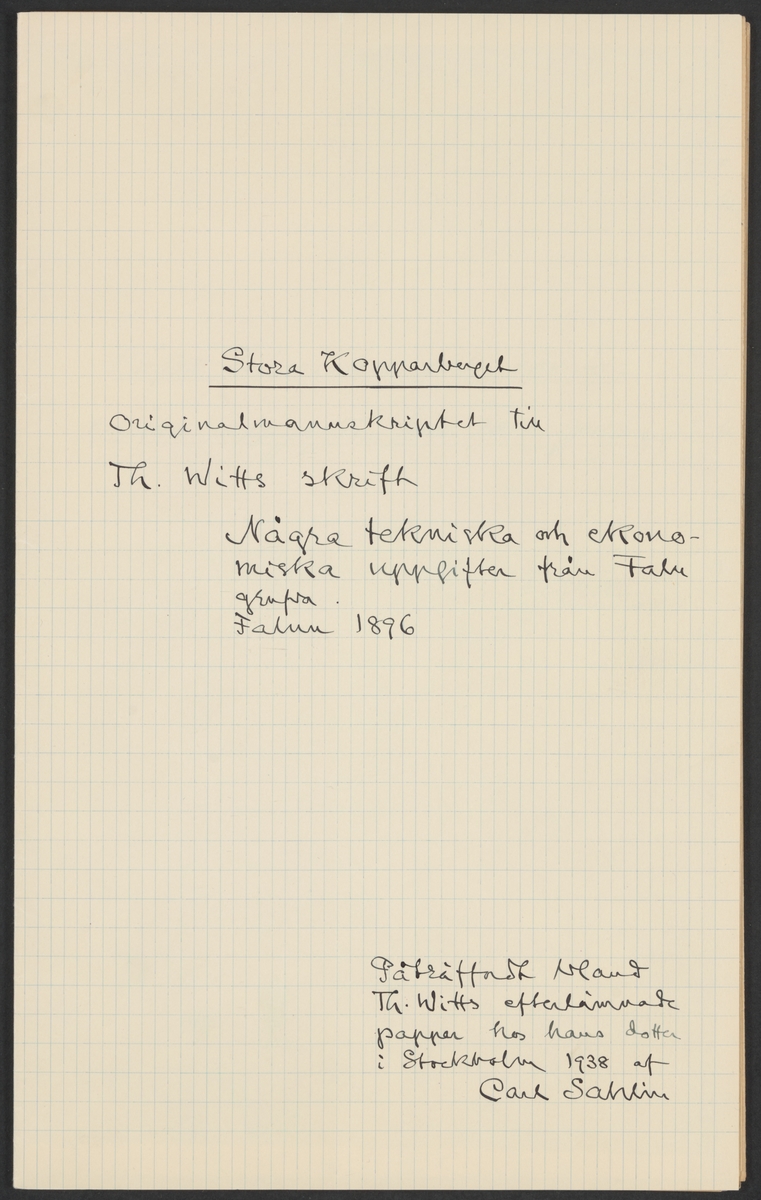 Stora Kopparberget
Originalmanuskriptet till
Th. Witts skrift
Några tekniska och ekono-
miska uppgifter från Falu
grufva.
Falun 1896
Påträffadt bland
Th. Witts efterlämnade
papper hos hans dotter
i Stockholm 1938 af
Carl Sahlin